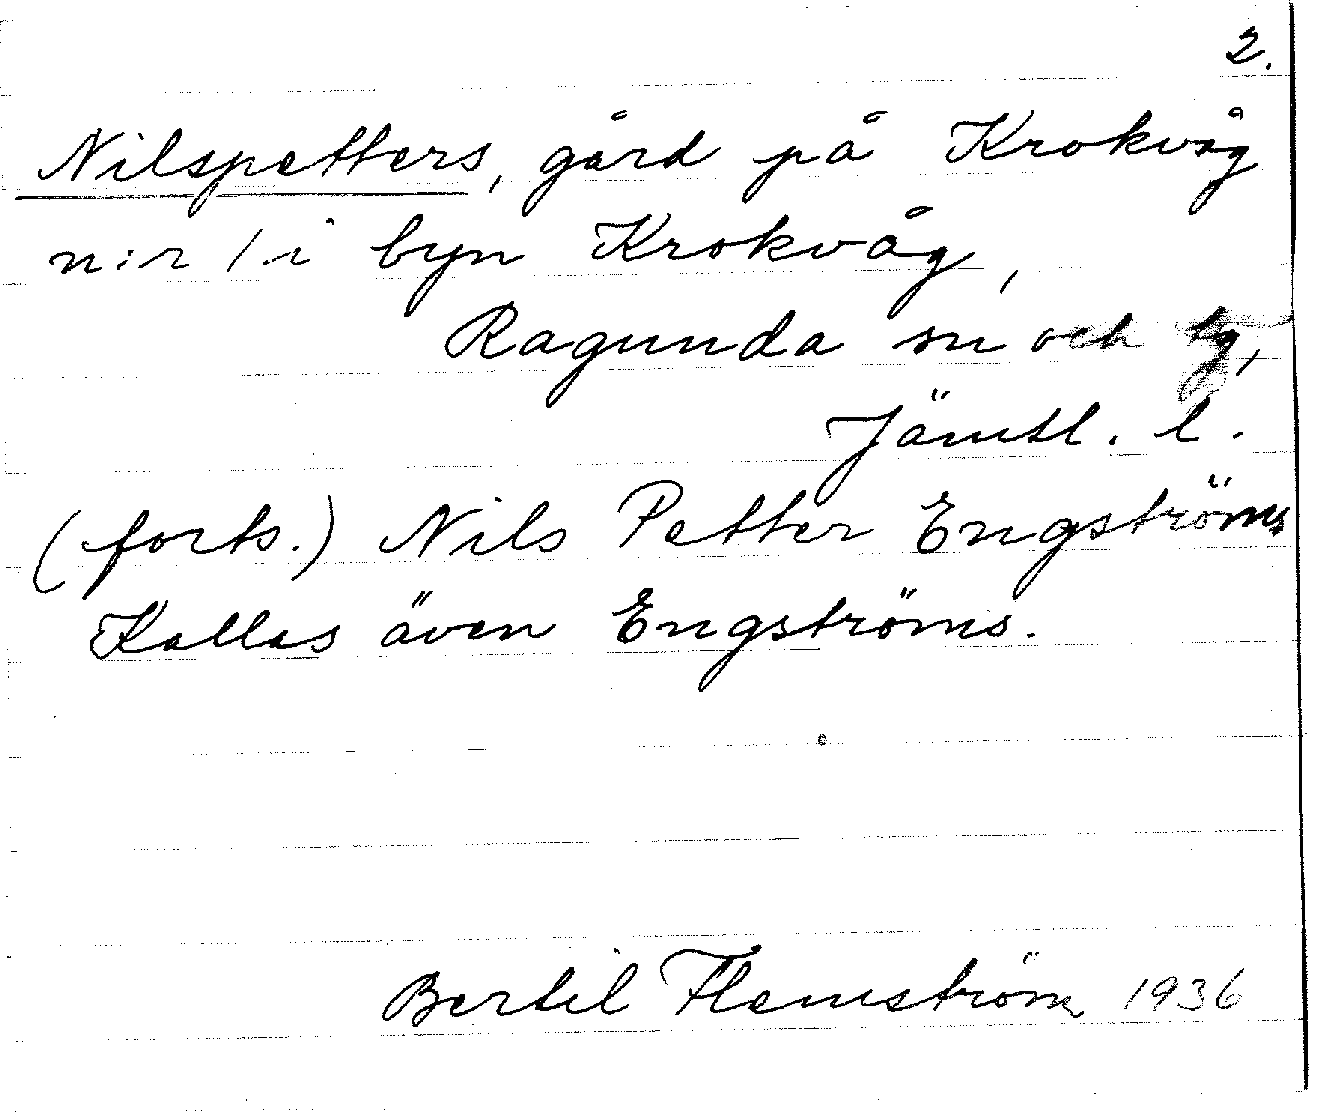 2.
Nilspetters, gård på Krokvåg
n:r 1 i byn Krokvåg,
Ragunda sn och tg,
Jämtl. l.
(forts.) Nils Petter Engströms
Kallas även Engströms.
Bertil Flemström 1936